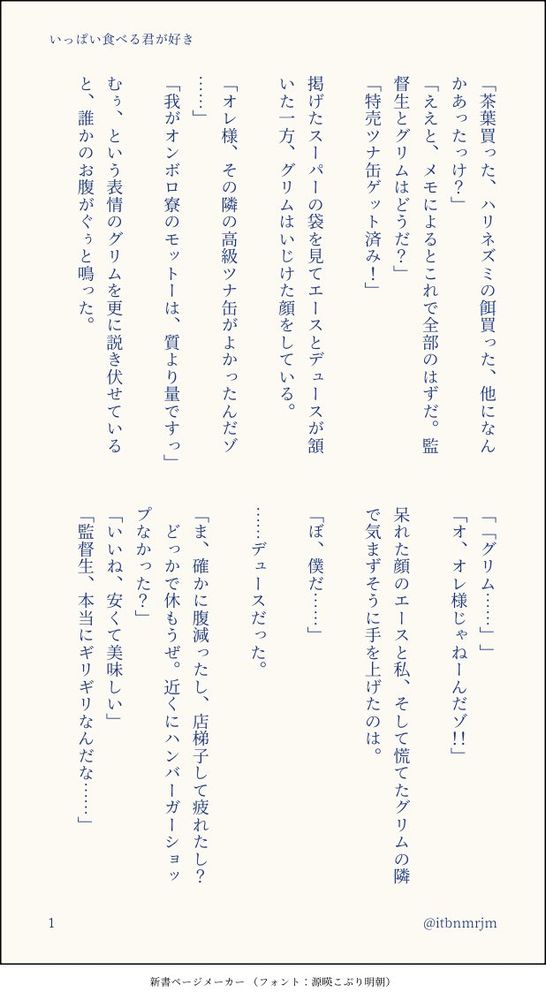 いっぱい食べる君が好き
「茶葉買った、ハリネズミの餌買った、他になん
かあったっけ？」
「ええと、メモによるとこれで全部のはずだ。監
督生とグリムはどうだ？」
「特売ツナ缶ゲット済み！」
掲げたスーパーの袋を見てエースとデュースが頷
いた一方、グリムはいじけた顔をしている。
「オレ様、その隣の高級ツナ缶がよかったんだゾ
……」
「我がオンボロ寮のモットーは、質より量ですっ」
むぅ、という表情のグリムを更に説き伏せている
と、誰かのお腹がぐぅと鳴った。
「「グリム……」」
「オ、オレ様じゃねーんだゾ!!」
呆れた顔のエースと私、そして慌てたグリムの隣
で気まずそうに手を上げたのは。
「ぼ、僕だ……」
……デュースだった。
「ま、確かに腹減ったし、店梯子して疲れたし？
どっかで休もうぜ。近くにハンバーガーショッ
プなかった？」
「いいね、安くて美味しい」
「監督生、本当にギリギリなんだな……」
1
@itbnmrjm
新書ページメーカー（フォント：源暎こぶり明朝）